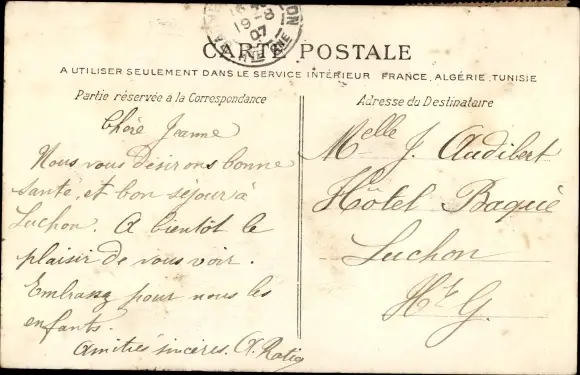 16
19-8
07
HTE GNE
CARTE POSTALE
A UTILISER SEULEMENT DANS LE SERVICE INTÉRIEUR FRANCE, ALGÉRIE, TUNISIE
Partie réservée à la Correspondance
Chère Jeanne
Nous vous désirons bonne
santé, et bon séjour à
Luchon. A bientôt le
plaisir de vous voir.
Embrassez pour nous les
enfants.
Amitiés sincères. A.
Adresse du Destinataire
Melle J. Audibert
Hôtel Baqué
Luchon
Hte G.